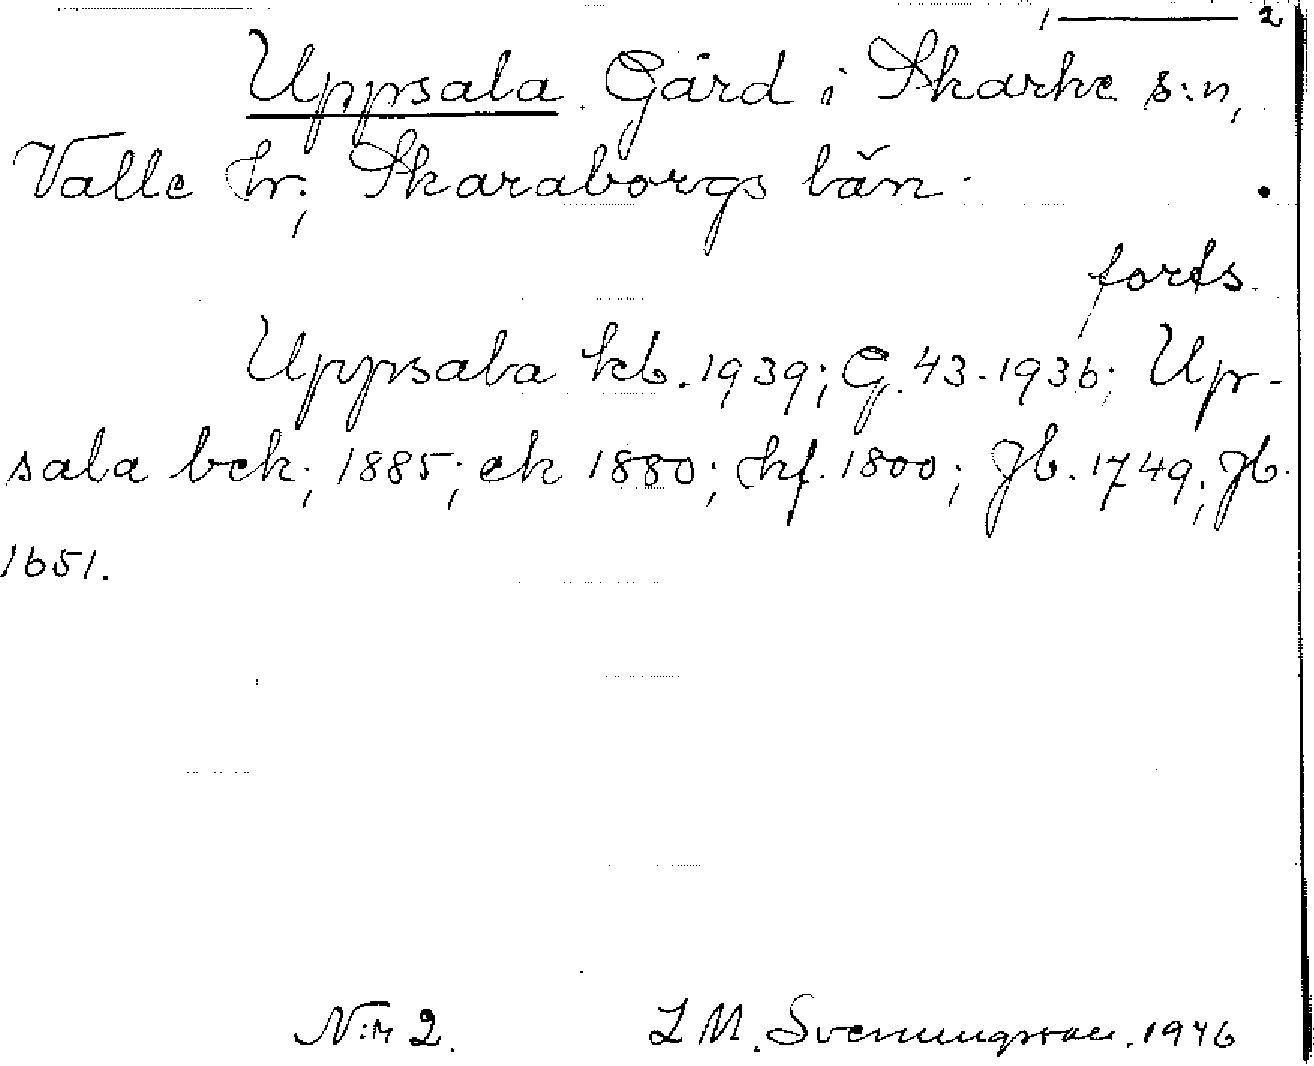 1 — 2
Uppsala. Gård i Skarke s:n,
Valle hr; Skaraborgs län.
forts.
Uppsala kb. 1939; G. 43. 1936; Up-
sala bek; 1885; ek 1880; hf. 1800; Jb. 1749; Jb.
1651.
N:r 2. L M. Svenungsson. 1946